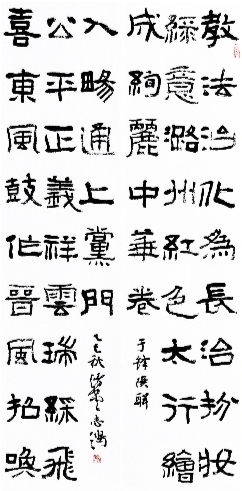 教法治化為長治扮妝
綵意潞州紅色太行繪
成絢麗中華卷
于鐸撰聯
喜東風鼓作晉風招喚
公平正義祥雲瑞綵飛
入暢通上黨門
乙巳秋